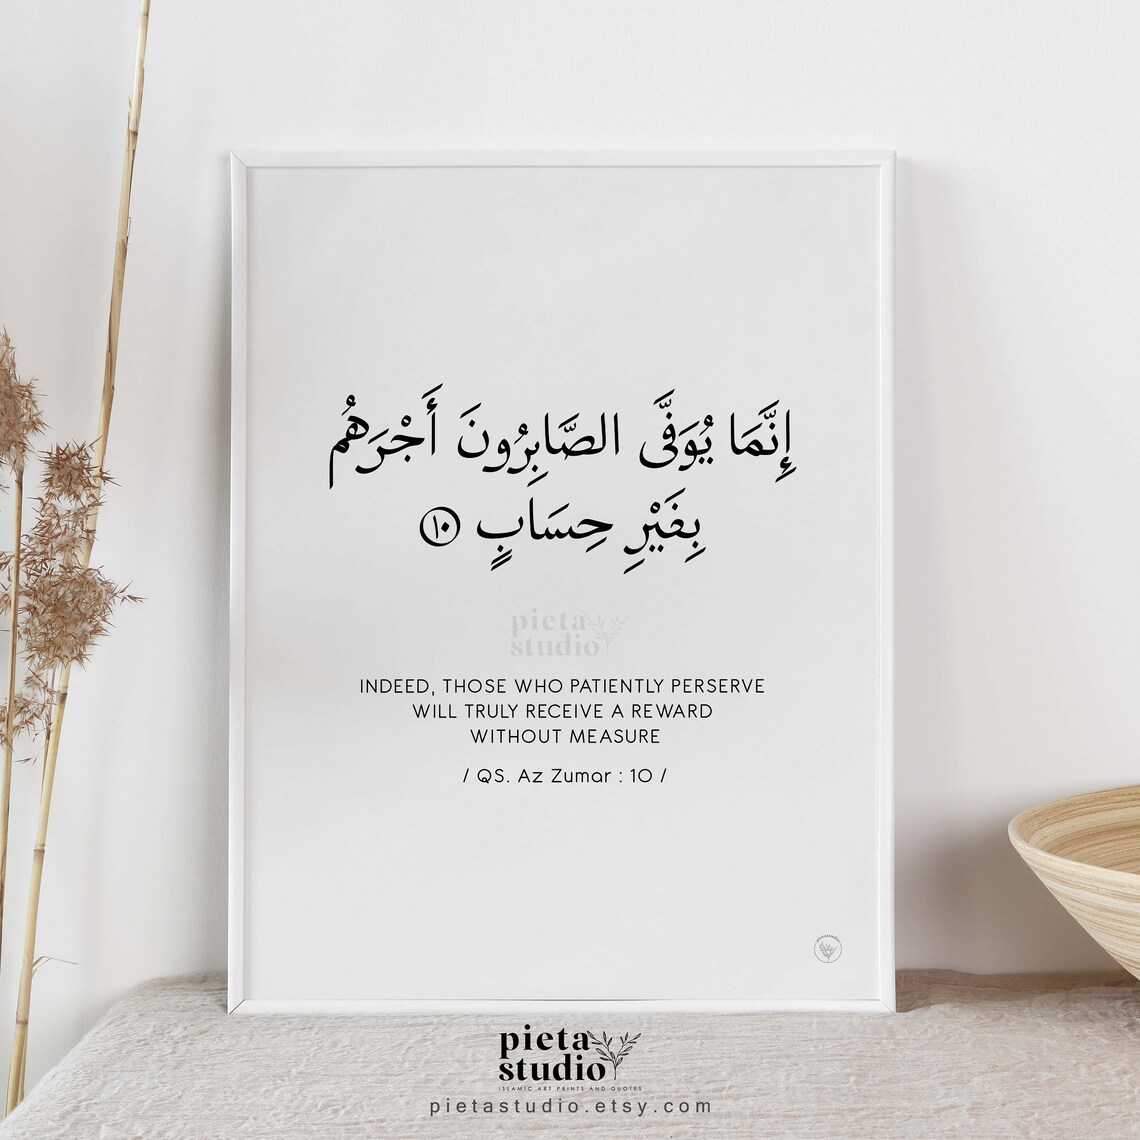 إِنَّمَا يُوَفَّى الصَّابِرُونَ أَجْرَهُم
بِغَيْرِ حِسَابٍ ١٠
pieta
studio
INDEED, THOSE WHO PATIENTLY PERSERVE
WILL TRULY RECEIVE A REWARD
WITHOUT MEASURE
/ QS. Az Zumar : 10 /
pietastudio
pieta
studio
ISLAMIC ART PRINTS AND QUOTES
pietastudio.etsy.com